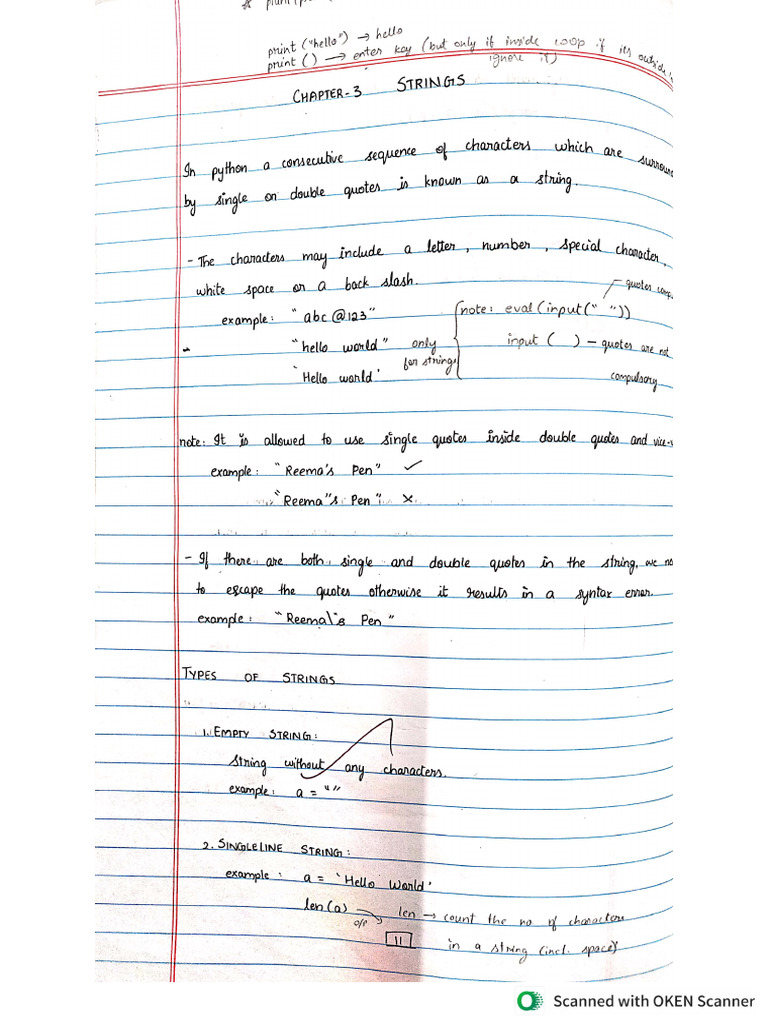 print ("hello") → hello
print () → enter key (but only if inside loop if its outside
ignore it)
CHAPTER-3 STRINGS
In python a consecutive sequence of characters which are surroun
by single or double quotes is known as a string.
- The characters may include a letter, number, special character,
white space or a back slash.
- quotes comp
example: "abc@123" note: eval(input(" "))
- "hello world" only input ( ) - quotes are not
for strings
'Hello world' compulsory
note: It is allowed to use single quotes inside double quotes and vice-v
example: "Reema's Pen" ✓
"Reema"s Pen" ×
- If there are both single and double quotes in the string, we
to escape the quotes otherwise it results in a syntax error.
example: "Reema\'s Pen"
TYPES OF STRINGS
1. EMPTY STRING:
String without any characters.
example: a = ""
2. SINGLELINE STRING:
example: a = 'Hello World'
len(a) len → count the no of characters
O/P
11 in a string (incl. space)
Scanned with OKEN Scanner